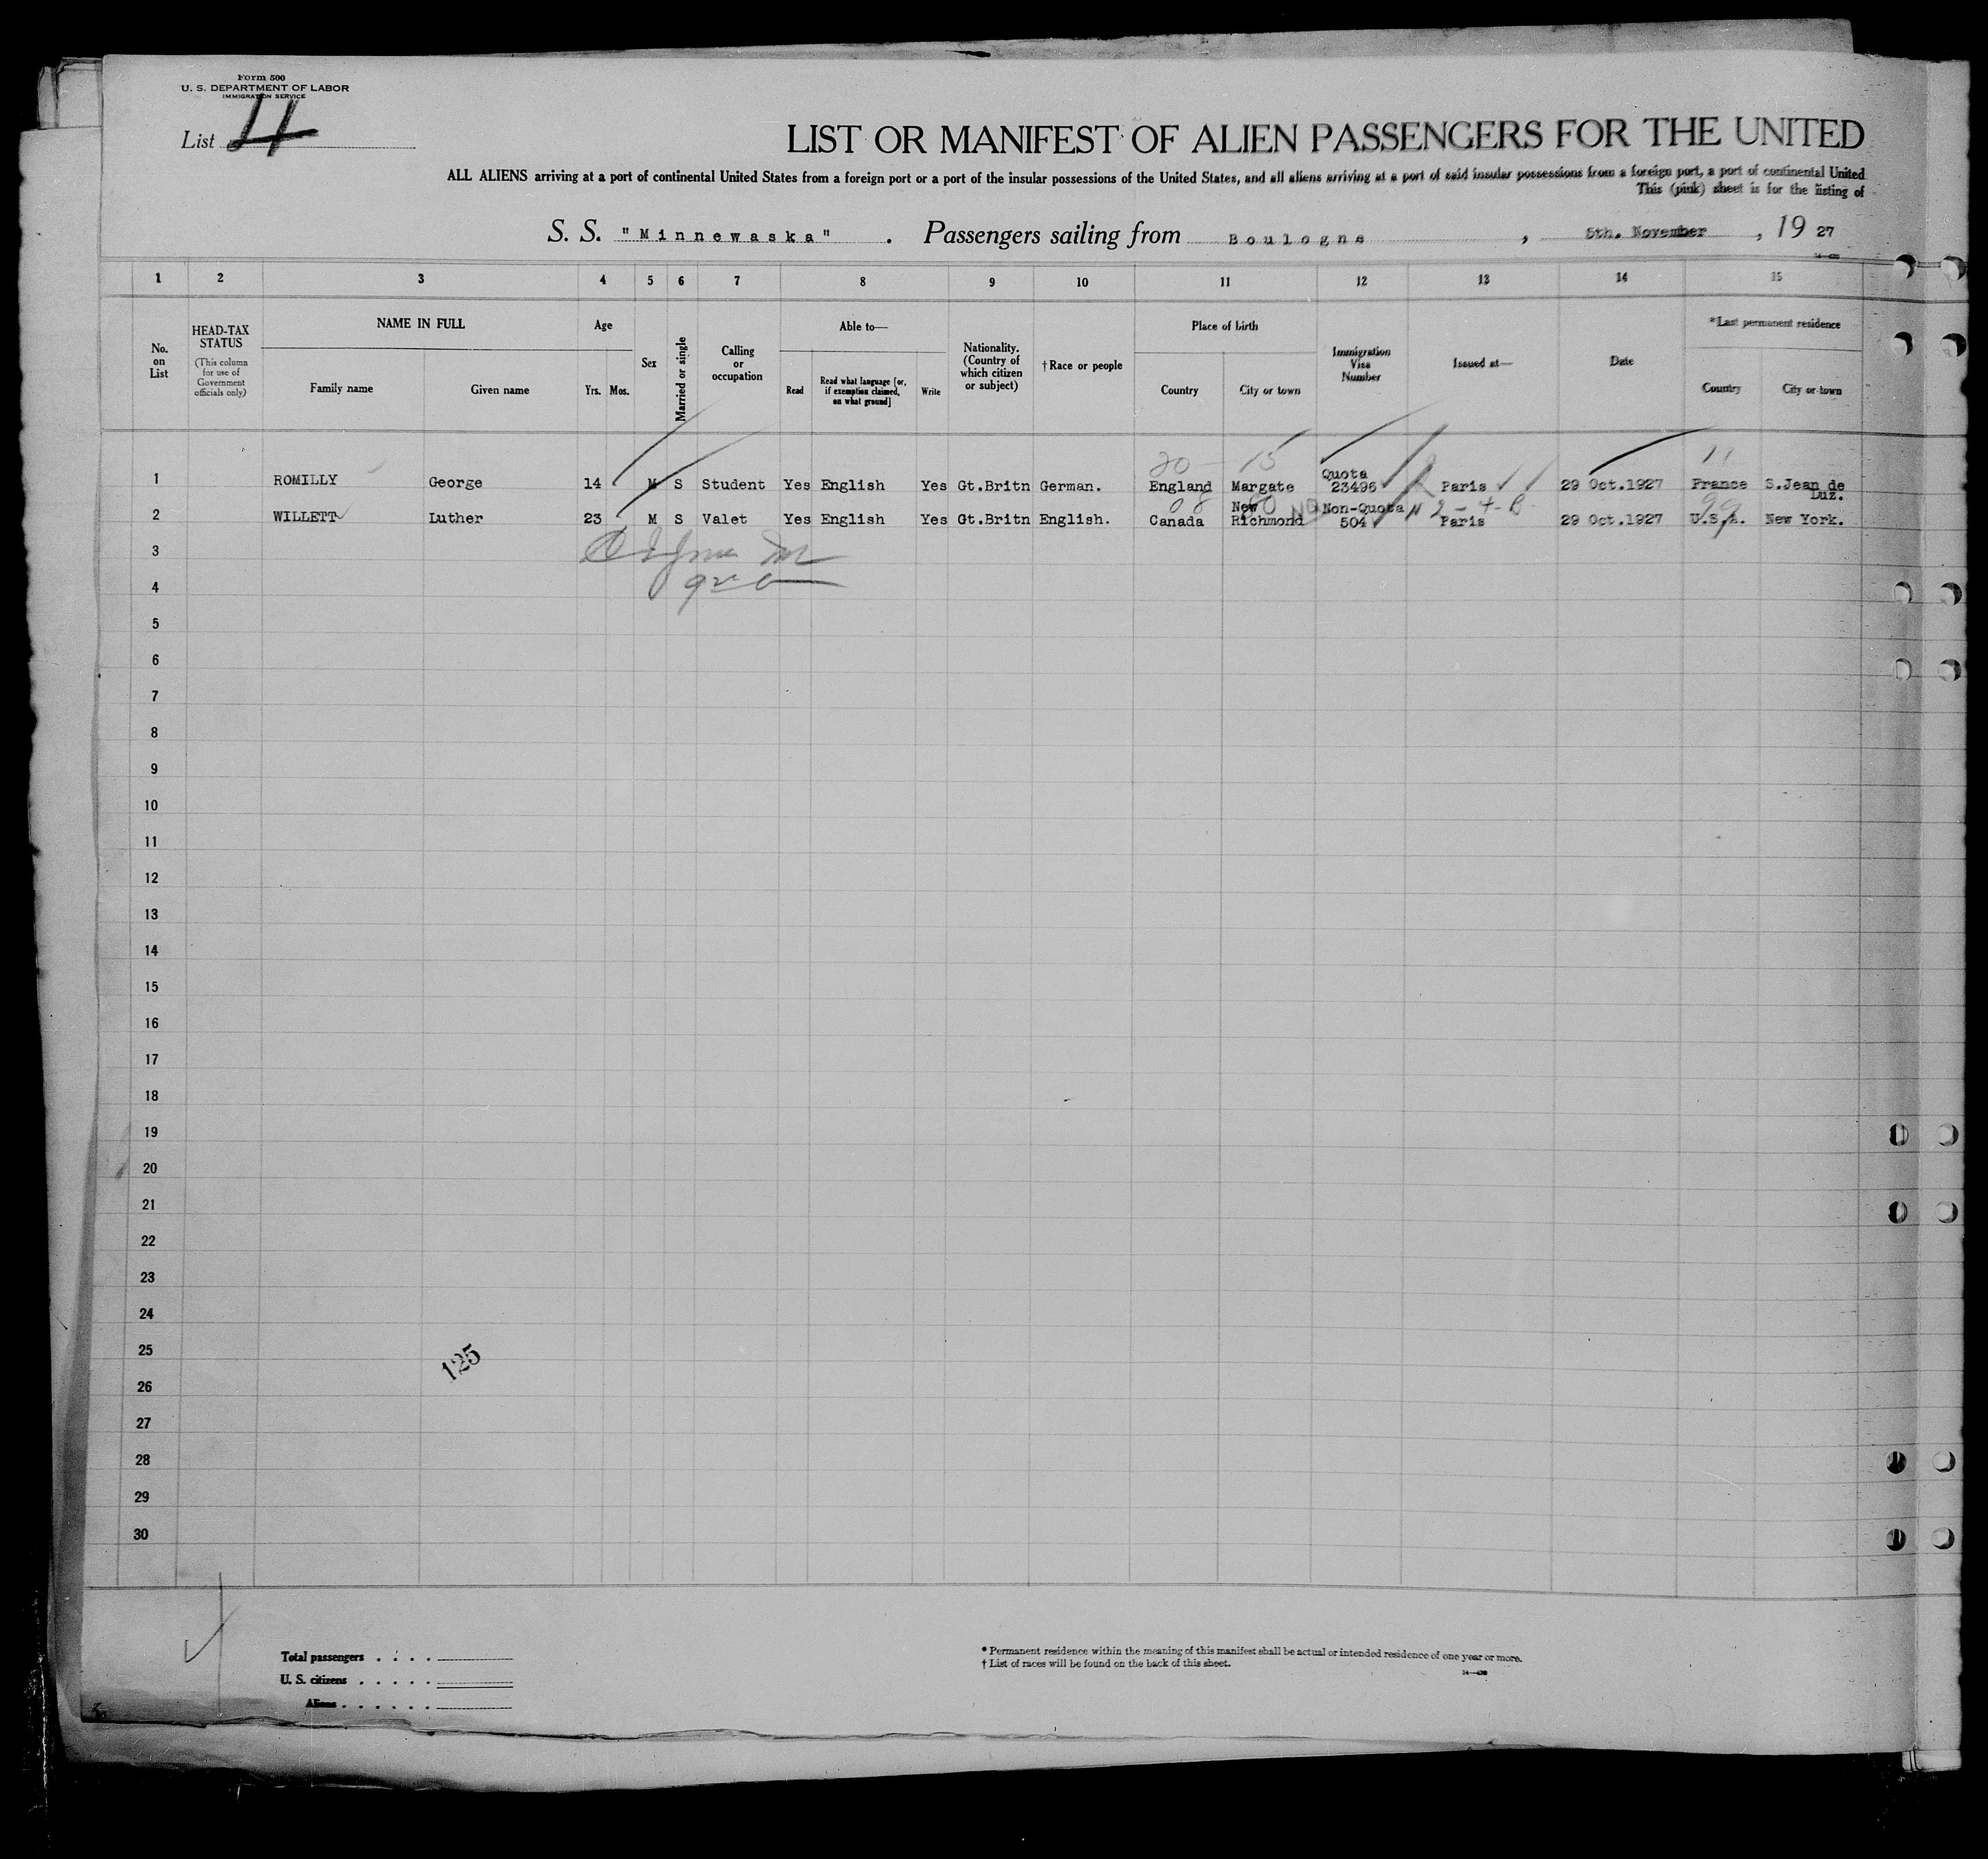 Form 500
U. S. DEPARTMENT OF LABOR
IMMIGRATION SERVICE
List 4
LIST OR MANIFEST OF ALIEN PASSENGERS FOR THE UNITED
ALL ALIENS arriving at a port of continental United States from a foreign port or a port of the insular possessions of the United States, and all aliens arriving at a port of said insular possessions from a foreign port, a port of continental United
This (pink) sheet is for the listing of
S. S. "Minnewaska" . Passengers sailing from Boulogne , 5th. November , 19 27
1 2 3 4 5 6 7 8 9 10 11 12 13 14 15
No. on List
HEAD-TAX STATUS
(This column for use of Government officials only)
NAME IN FULL
Family name Given name
Age
Yrs. Mos.
Sex
Married or single
Calling or occupation
Able to—
Read
Read what language [or, if exemption claimed, on what ground]
Write
Nationality. (Country of which citizen or subject)
†Race or people
Place of birth
Country City or town
Immigration Visa Number
Issued at—
Date
*Last permanent residence
Country City or town
20 15 11
1 ROMILLY George 14 M S Student Yes English Yes Gt.Britn German. England Margate Quota 23496 Paris 29 Oct.1927 France S.Jean de Luz.
2 WILLETT Luther 23 M S Valet Yes English Yes Gt.Britn English. Canada New Richmond Non-Quota 504 Paris 29 Oct.1927 U.S.A. New York.
3
4
5
6
7
8
9
10
11
12
13
14
15
16
17
18
19
20
21
22
23
24
25
125
26
27
28
29
30
Total passengers . . . .
U. S. citizens . . . . .
Aliens . . . . . .
* Permanent residence within the meaning of this manifest shall be actual or intended residence of one year or more.
† List of races will be found on the back of this sheet.